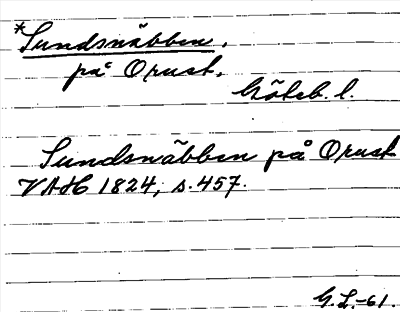 *Sundsnäbben,
på Orust.
Göteb. l.
Sundsnäbben på Orust
VAH 1824, s. 457.
G.L.-61.